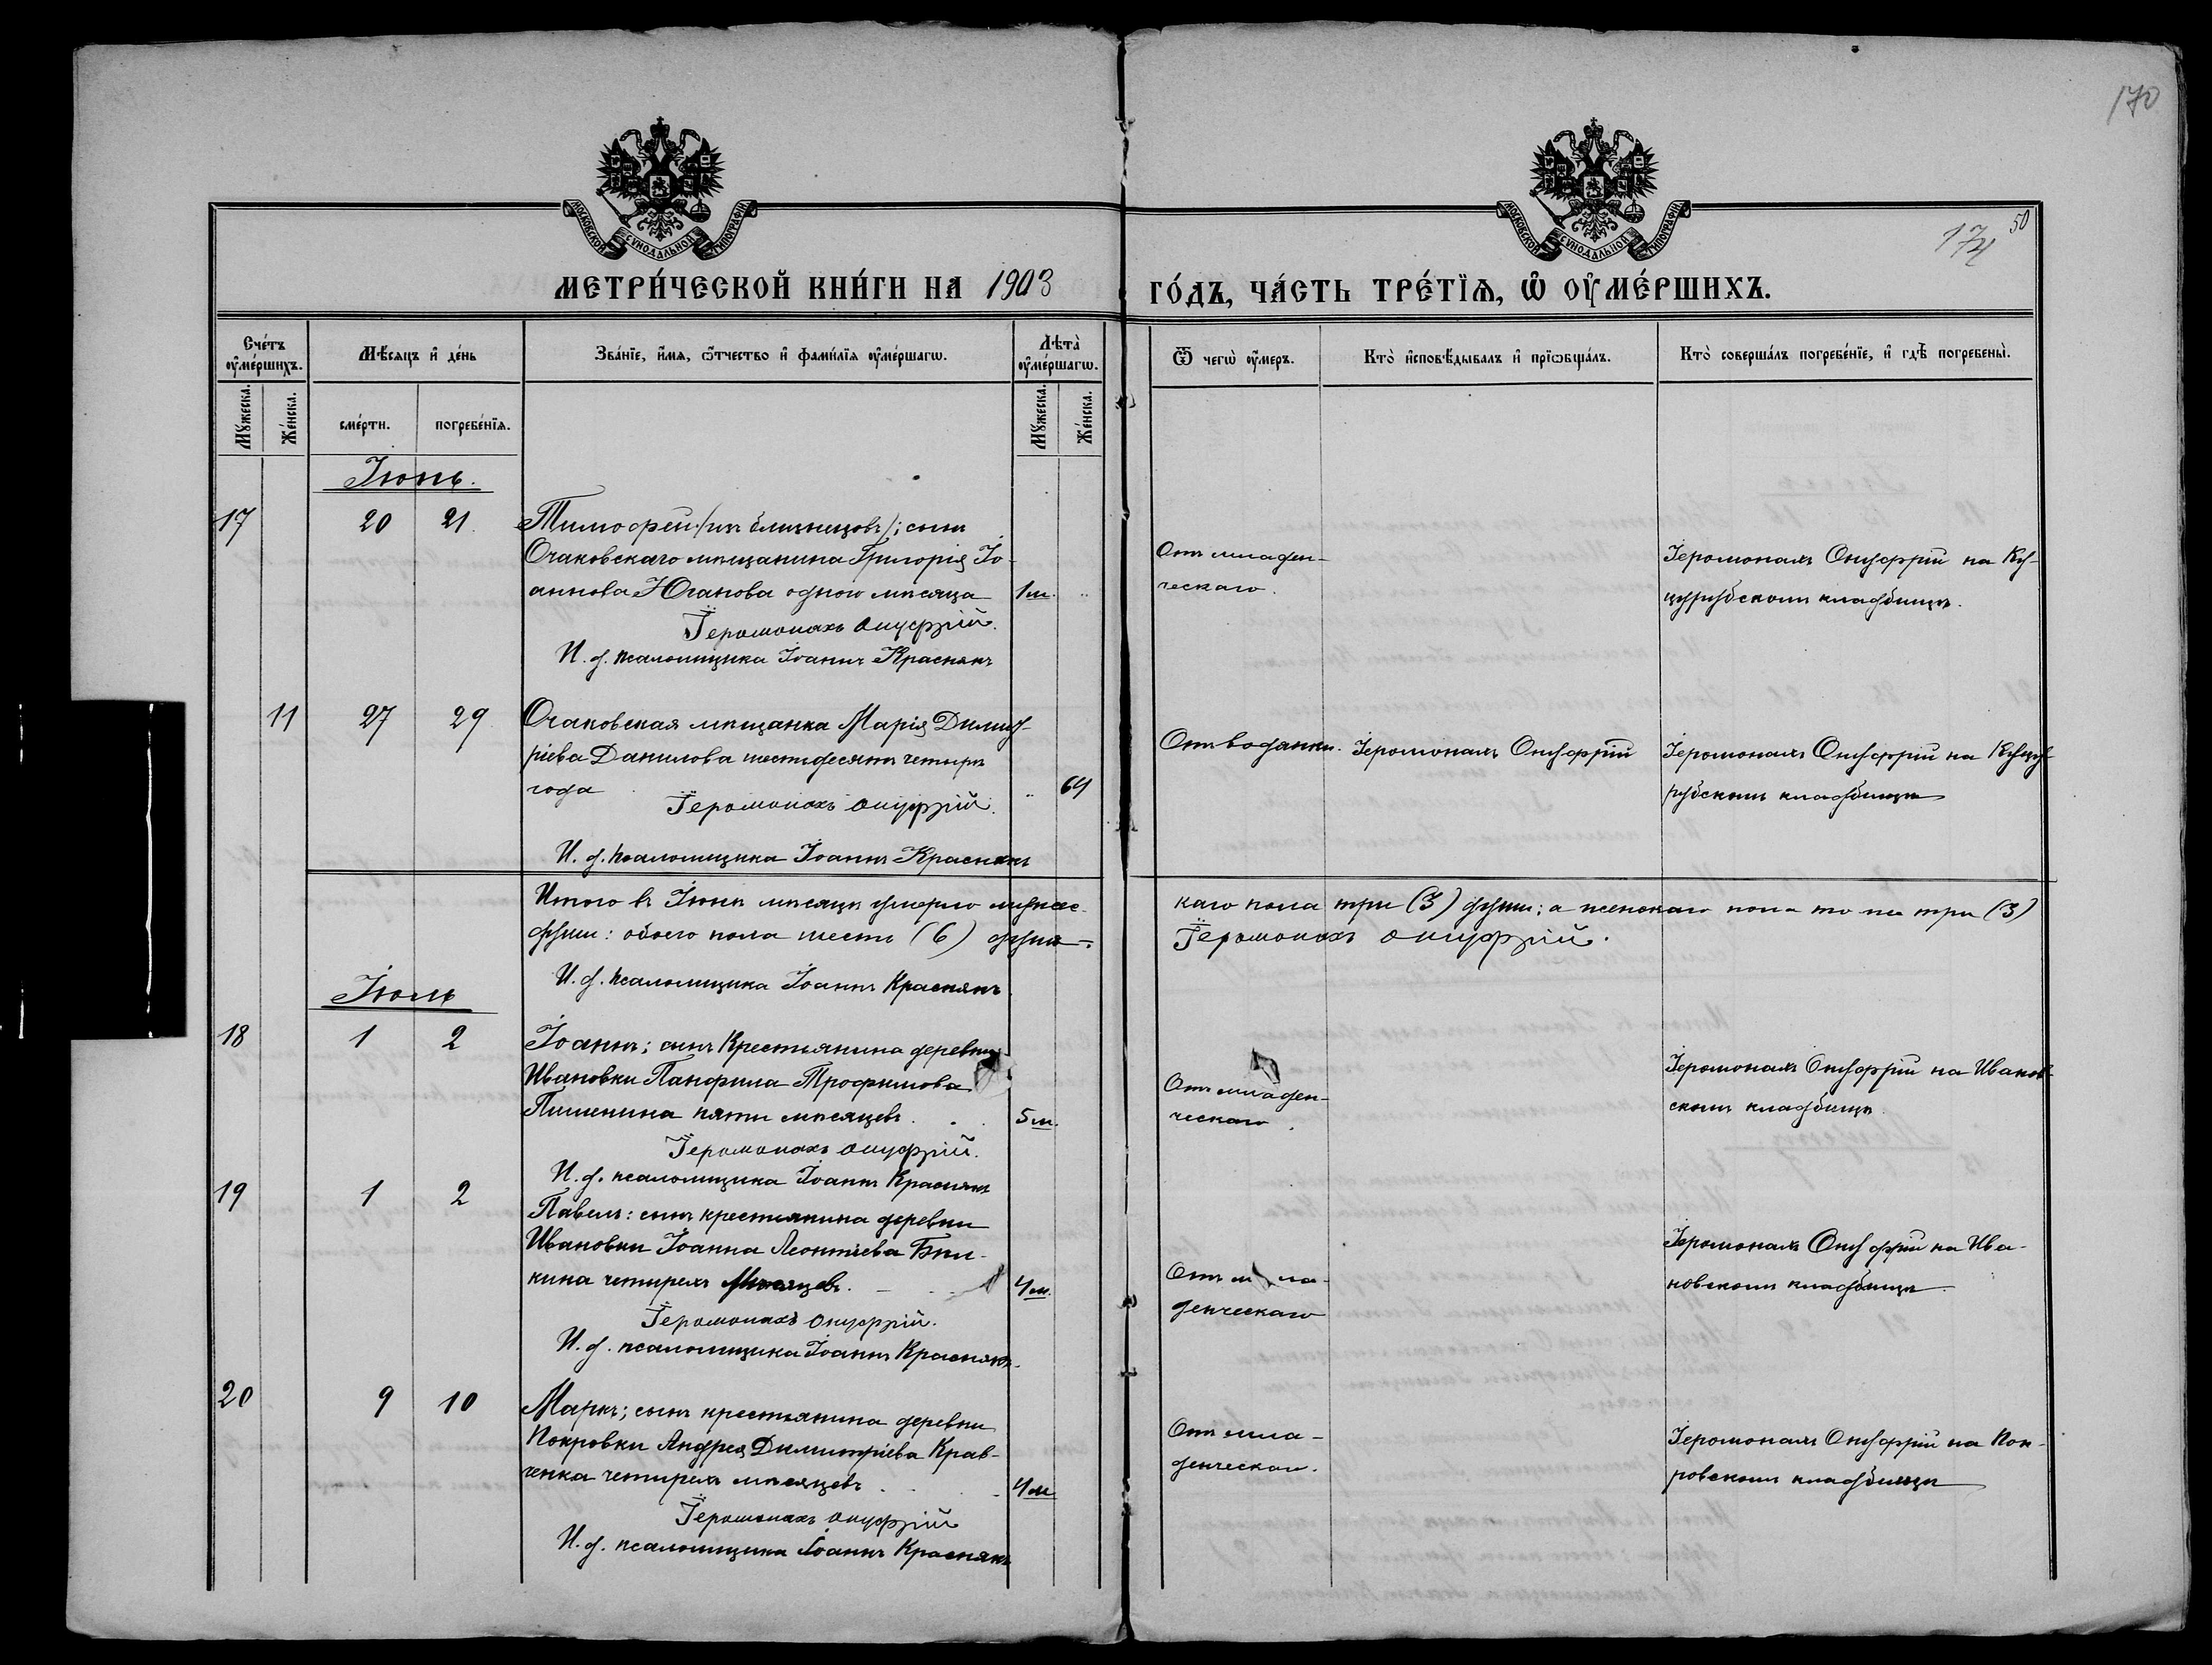 170
МОСКОВСКОЙ СѴНОДАЛЬНОЙ ТИПОГРАФІИ
МОСКОВСКОЙ СѴНОДАЛЬНОЙ ТИПОГРАФІИ
50
МЕТРИ́ЧЕСКОЙ КНИ́ГИ НА 1903 ГО́ДЪ, ЧА́СТЬ ТРЕ́ТЇѦ, Ѡ ОУ҆МЕ́РШИХЪ.
Сче́тъ оу҆ме́ршихъ.
Мѣ́сяцъ и҆ де́нь
Зва́нїе, и҆́мѧ, ѻ҆́тчество и҆ фами́лїѧ оу҆ме́ршагѡ.
Лѣта̀ оу҆ме́ршагѡ.
Ѿ чегѡ̀ оу҆́меръ.
Кто̀ и҆сповѣ́дывалъ и҆ прїѡбща́лъ.
Кто̀ соверша́лъ погребе́нїе, и҆ гдѣ̀ погребены̀.
Мꙋ́жеска.
Же́нска.
сме́рти.
погребе́нїѧ.
Мꙋ́жеска.
Же́нска.
Іюнь.
17 20 21 Тимофей (изъ близнецовъ); сынъ
Очаковскаго мѣщанина Григорія Іо-
аннова Юганова одного мѣсяца 1 м.
Іеромонахъ Онуфрій.
И. д. псаломщика Іоаннъ Краснякъ
Отъ младен-
ческаго.
Іеромонахъ Онуфрій на Ку-
цурубскомъ кладбищѣ.
11 27 29 Очаковская мѣщанка Марія Димит-
ріева Данилова шестдесятъ четыре
года 64
Іеромонахъ Онуфрій.
И. д. псаломщика Іоаннъ Краснякъ
Отъ водянки. Іеромонахъ Онуфрій
Іеромонахъ Онуфрій на Куцу-
рубскомъ кладбищѣ
Итого въ Іюнѣ мѣсяцѣ умерло мужес-
каго пола три (3) души; а женскаго пола то же три (3)
души: обоего пола шесть (6) душъ.
Іеромонахъ Онуфрій.
И. д. псаломщика Іоаннъ Краснякъ.
Іюль
18 1 2 Іоаннъ; сынъ Крестьянина деревни
Ивановки Панфила Трофимова
Пименина пяти мѣсяцевъ. 5 м.
Іеромонахъ Онуфрій.
И. д. псаломщика Іоаннъ Краснякъ
Отъ младен-
ческаго.
Іеромонахъ Онуфрій на Иванов-
скомъ кладбищѣ.
19 1 2
Павелъ: сынъ крестьянина деревни
Ивановки Іоанна Леонтіева Бѣли-
кина четырехъ мѣсяцевъ. 4 м.
Іеромонахъ Онуфрій.
И. д. псаломщика Іоаннъ Краснякъ.
Отъ мла-
денческаго
Іеромонахъ Онуфрій на Ива-
новскомъ кладбищѣ.
20 9 10 Маркъ; сынъ крестьянина деревни
Покровки Андрея Димитріева Крав-
ченка четырехъ мѣсяцевъ 4 м.
Іеромонахъ Онуфрій
И. д. псаломщика Іоаннъ Краснякъ
Отъ мла-
денческаго.
Іеромонахъ Онуфрій на Пок-
ровскомъ кладбищѣ